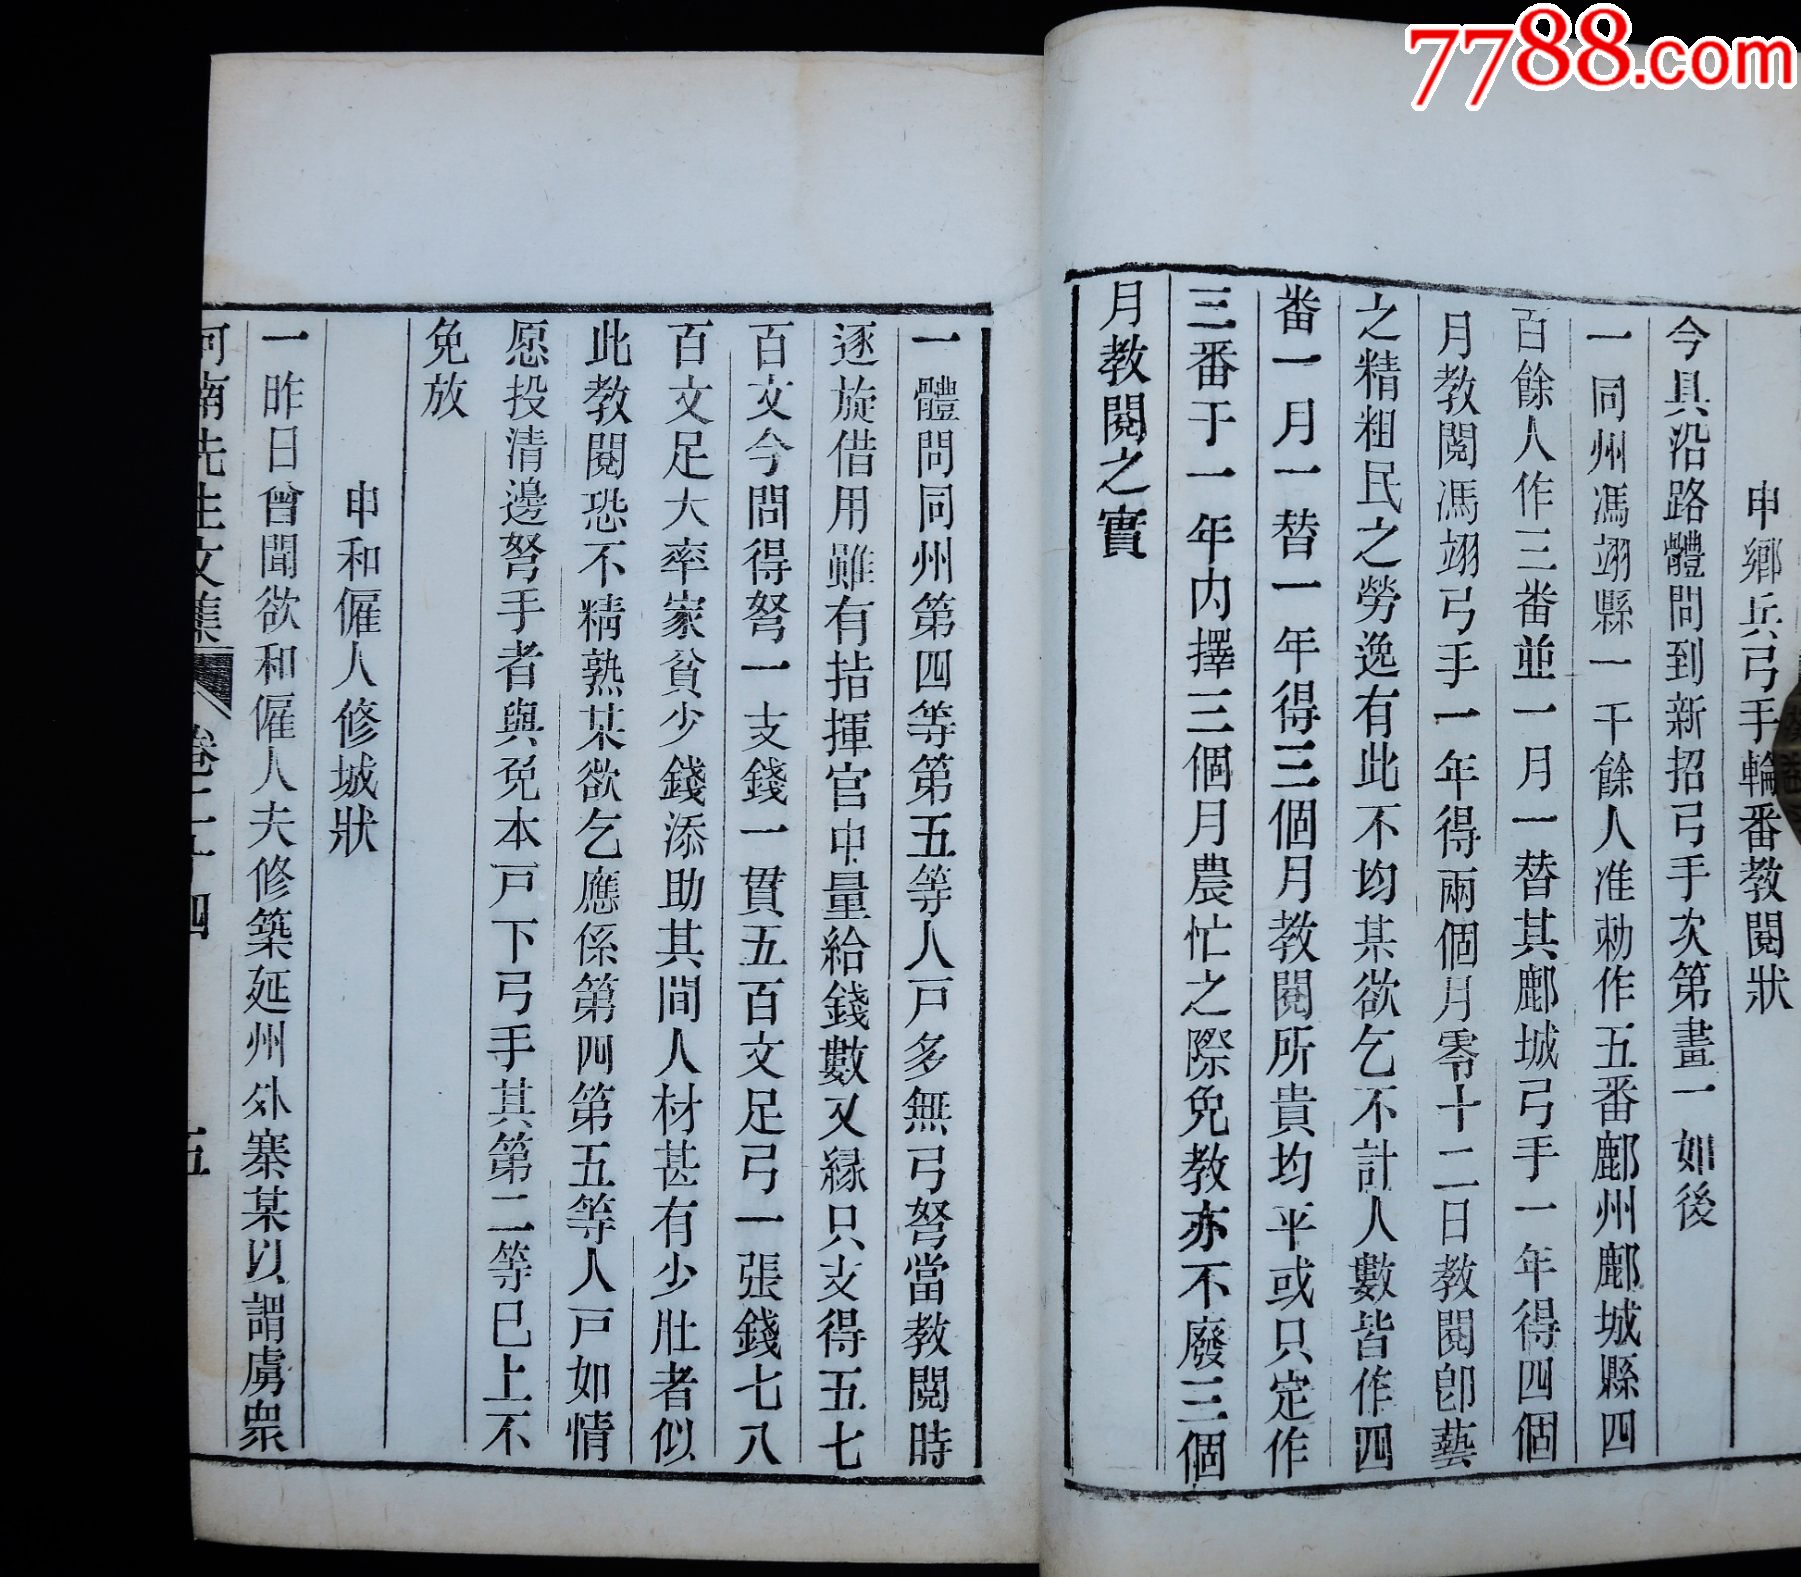 7788.com
申鄉兵弓手輪番教閱狀
今具沿路體問到新招弓手次第畫一如後
一同州馮翊縣一千餘人准勅作五番鄜州鄜城縣四
百餘人作三番並一月一替其鄜城弓手一年得四個
月教閱馮翊弓手一年得兩個月零十二日教閱卽藝
之精粗民之勞逸有此不均某欲乞不計人數皆作四
番一月一替一年得三個月教閱所貴均平或只定作
三番于一年内擇三個月農忙之際免教亦不廢三個
月教閱之實
一體問同州第四等第五等人戸多無弓弩當教閱時
逐旋借用雖有指揮官中量給錢數又緣只支得五七
百文今問得弩一支錢一貫五百文足弓一張錢七八
百文足大率家貧少錢添助其間人材甚有少壯者似
此教閱恐不精熟某欲乞應係第四第五等人戸如情
愿投清邊弩手者與免本戸下弓手其第二等已上不
免放
申和僱人修城狀
一昨日曾聞欲和僱人夫修築延州外寨某以謂虜衆
河南先生文集
卷二十四
五